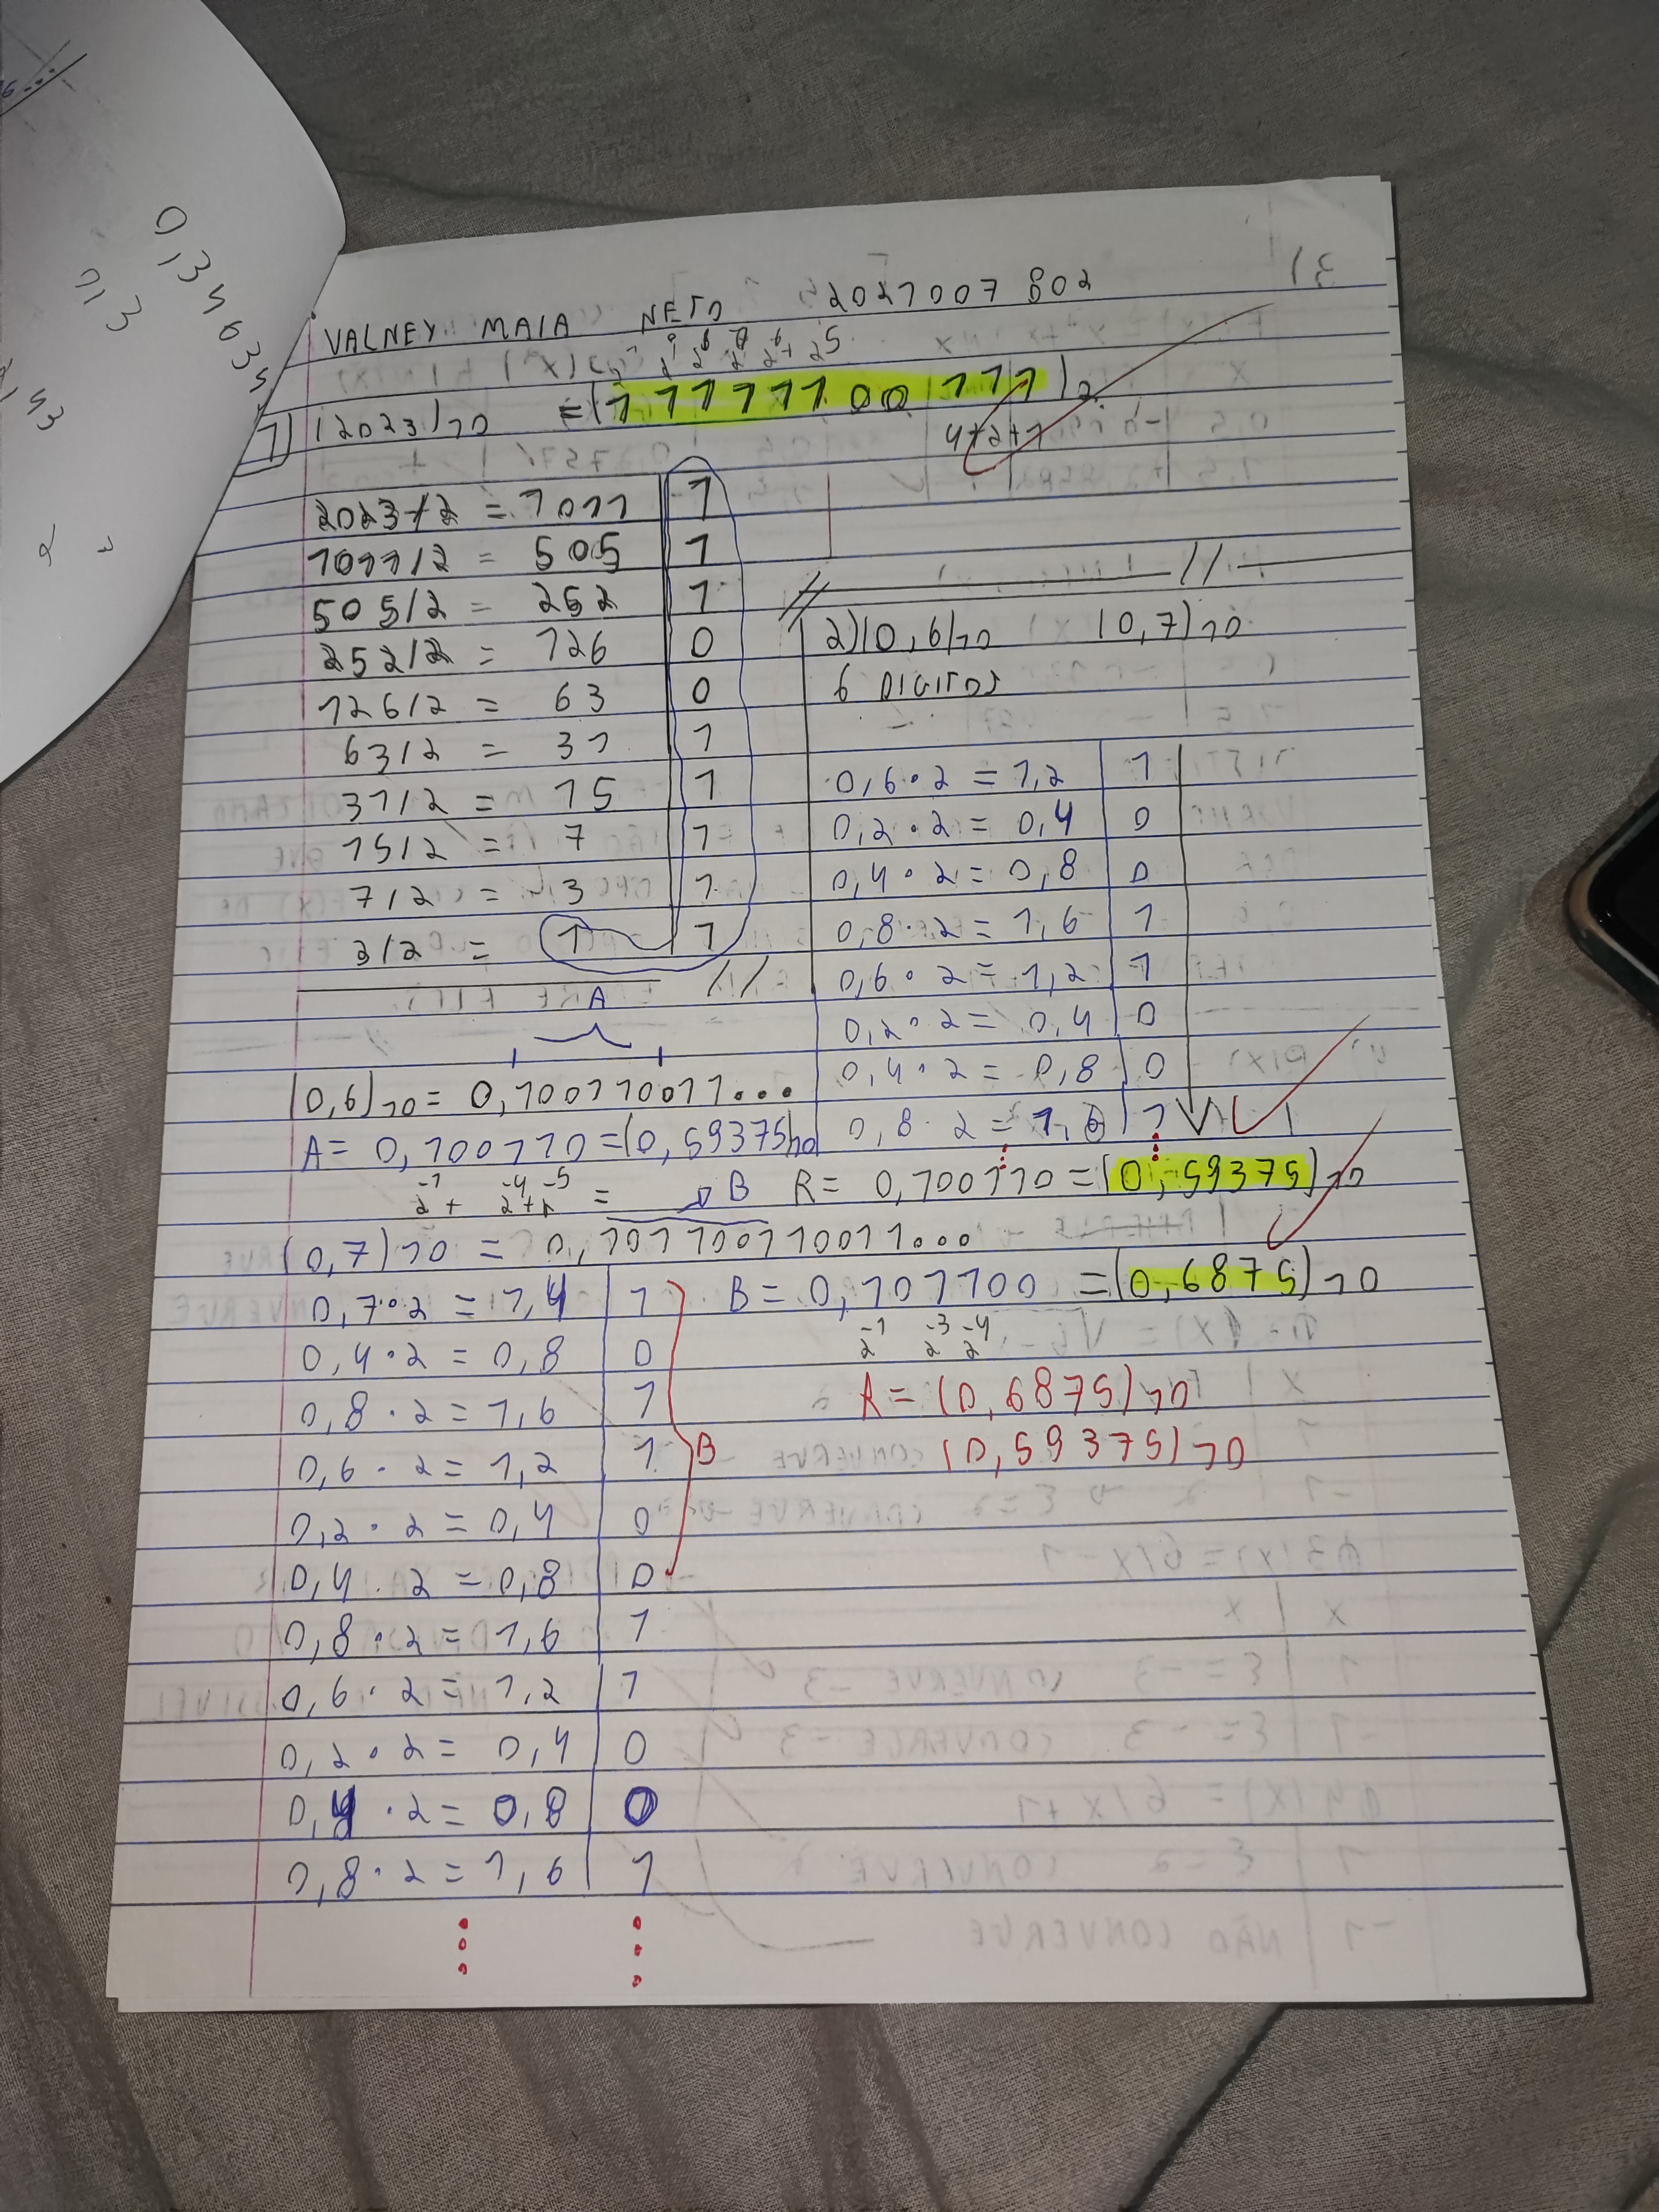 0,34635
1,3
VALNEY MAIA NETO 2021007802
1) (2023)10 = (11111100111)2
4+2+1
2023/2 = 1011 | 1
1011/2 = 505 | 1
505/2 = 252 | 1
252/2 = 126 | 0
126/2 = 63 | 0
63/2 = 31 | 1
31/2 = 15 | 1
15/2 = 7 | 1
7/2 = 3 | 1
3/2 = 1 | 1
2) (0,6)10 (0,7)10
6 DIGITOS
0,6·2 = 1,2 | 1
0,2·2 = 0,4 | 0
0,4·2 = 0,8 | 0
0,8·2 = 1,6 | 1
0,6·2 = 1,2 | 1
0,2·2 = 0,4 | 0
0,4·2 = 0,8 | 0
0,8·2 = 1,6 | 1
A
(0,6)10 = 0,100110011...
A = 0,100110 = (0,59375)10
2^-1 + 2^-4 + 2^-5 =
R = 0,100110 = (0,59375)10
B
(0,7)10 = 0,101100110011...
0,7·2 = 1,4 | 1
0,4·2 = 0,8 | 0
0,8·2 = 1,6 | 1
0,6·2 = 1,2 | 1
0,2·2 = 0,4 | 0
0,4·2 = 0,8 | 0
0,8·2 = 1,6 | 1
0,6·2 = 1,2 | 1
0,2·2 = 0,4 | 0
0,4·2 = 0,8 | 0
0,8·2 = 1,6 | 1
B
B = 0,101100 = (0,6875)10
2^-1 2^-3 2^-4
R = (0,6875)10
(0,59375)10